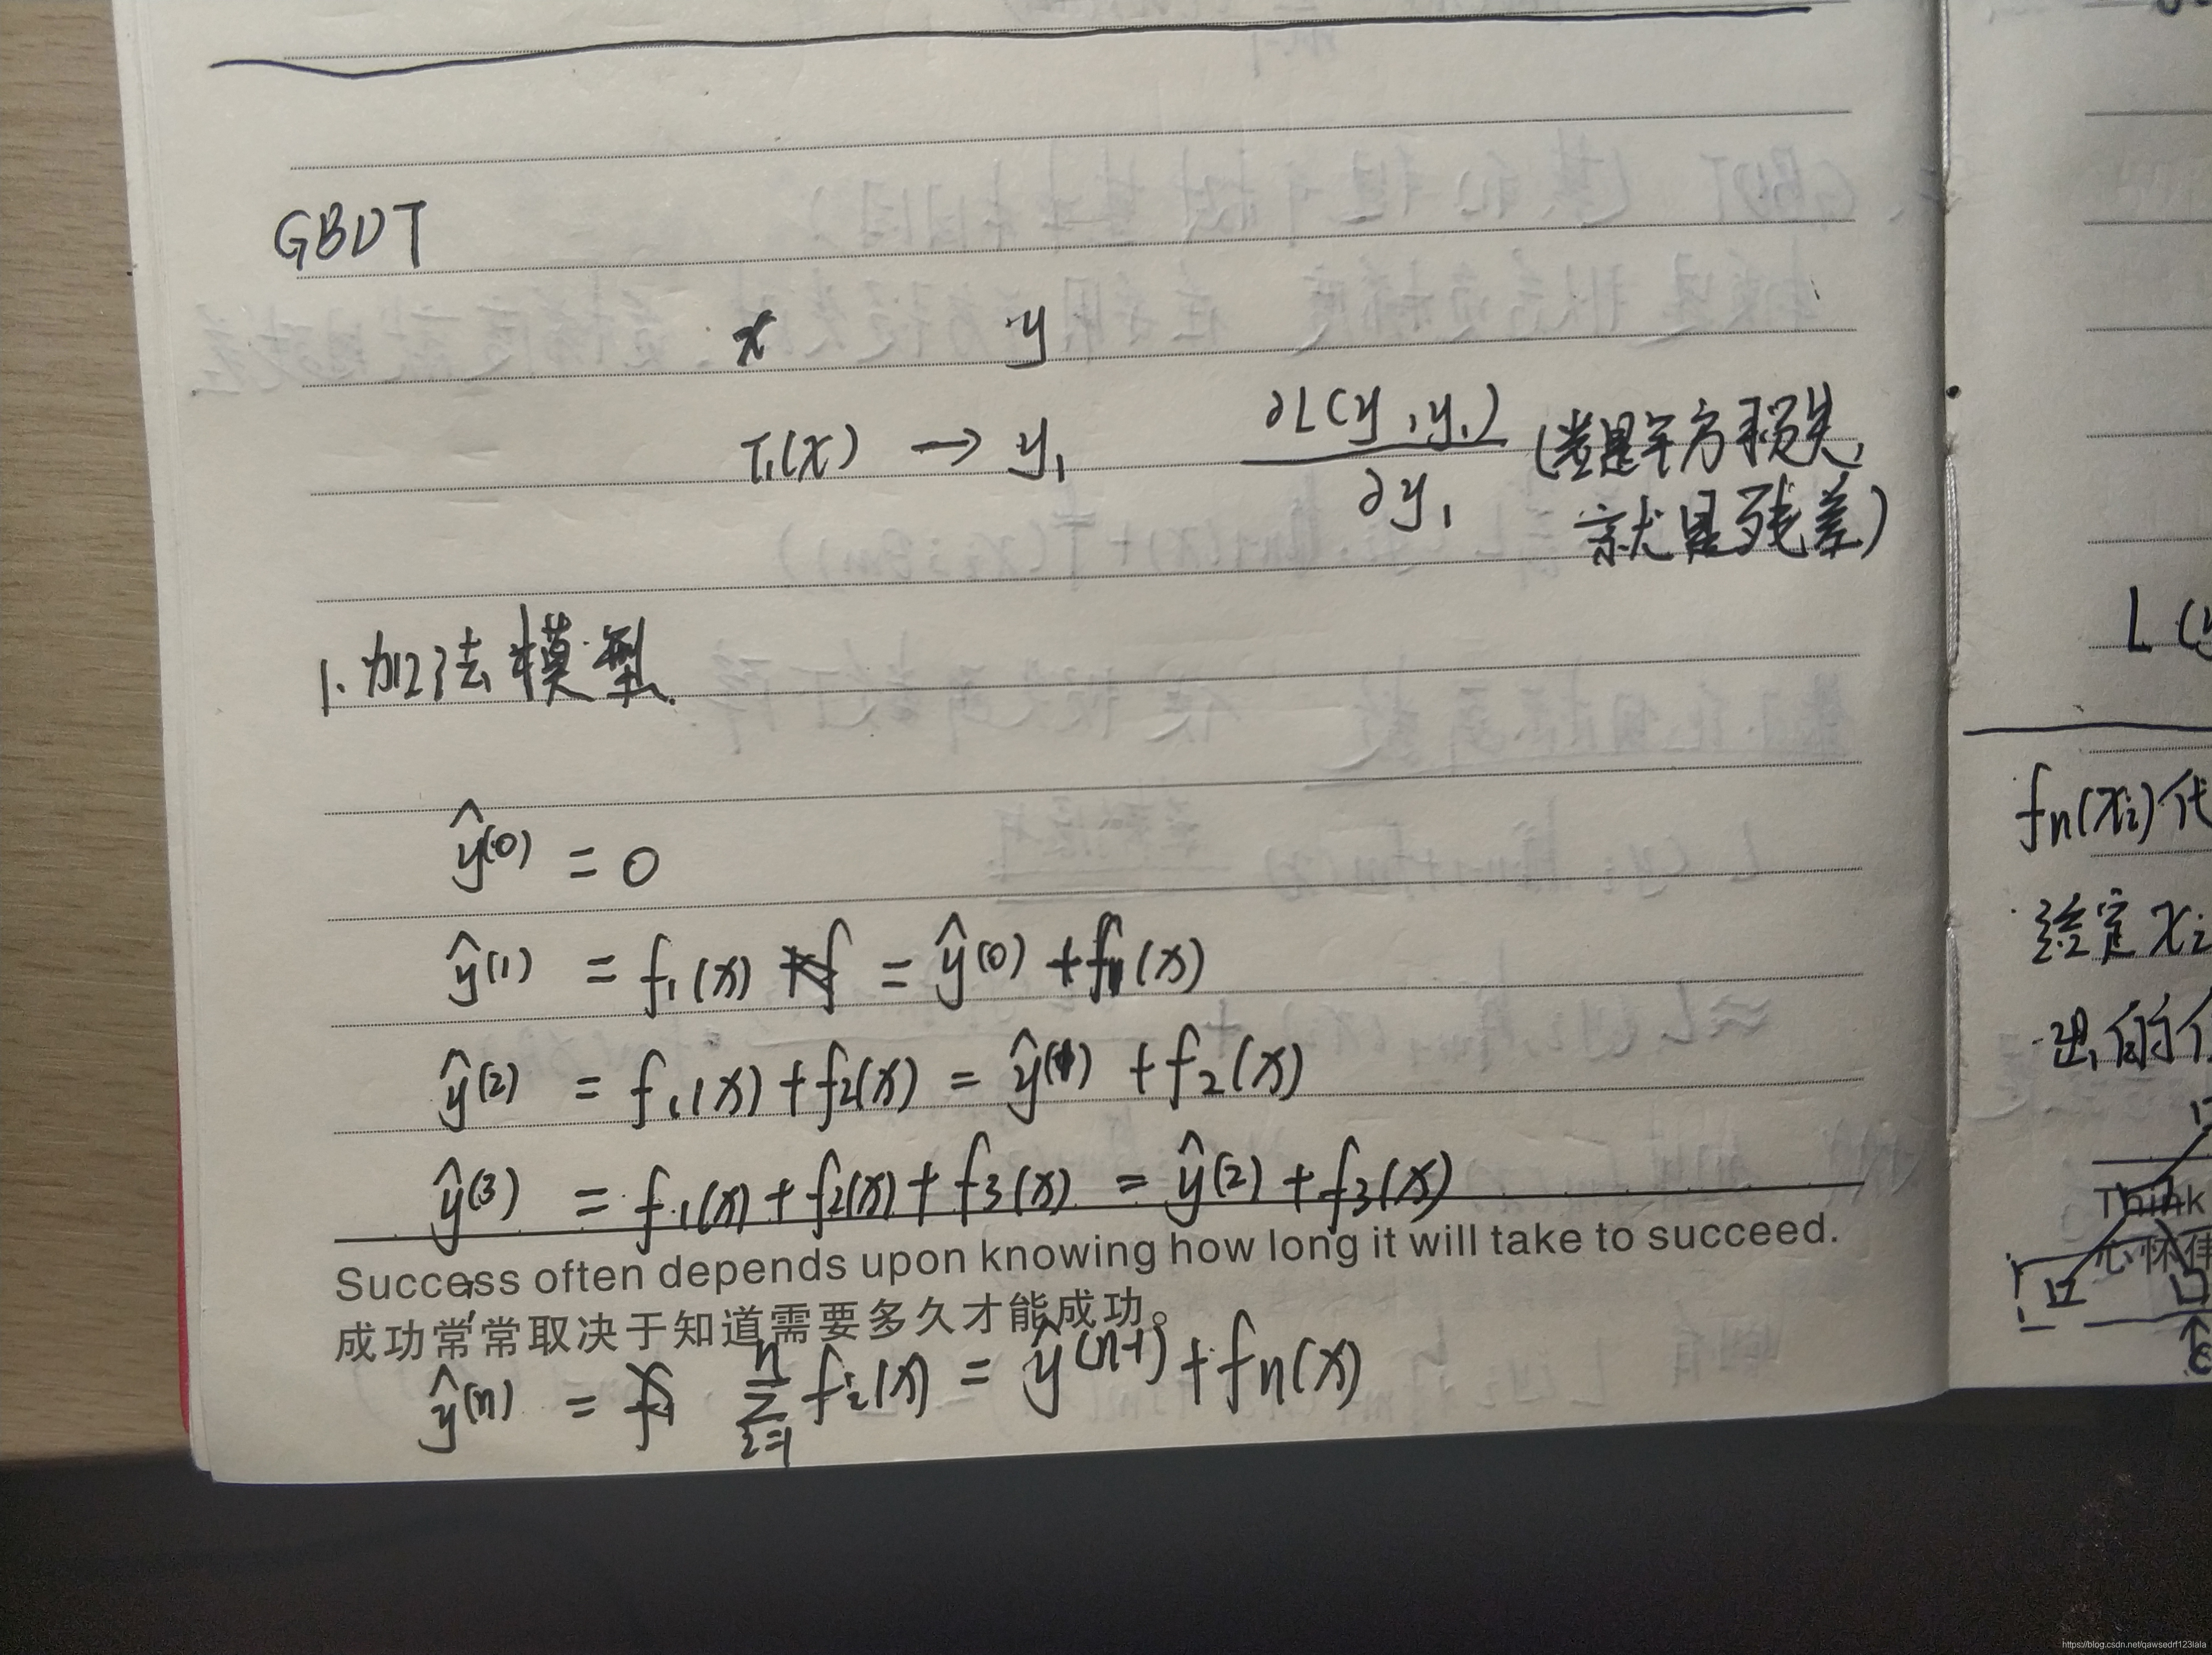 GBDT
x y
T₁(x) → y₁ ∂L(y, y₁) / ∂y₁ (若是平方损失,
就是残差)
1. 加法模型
ŷ⁽⁰⁾ = 0
ŷ⁽¹⁾ = f₁(x) = ŷ⁽⁰⁾ + f₁(x)
ŷ⁽²⁾ = f₁(x) + f₂(x) = ŷ⁽¹⁾ + f₂(x)
ŷ⁽³⁾ = f₁(x) + f₂(x) + f₃(x) = ŷ⁽²⁾ + f₃(x)
Success often depends upon knowing how long it will take to succeed.
成功常常取决于知道需要多久才能成功。
ŷ⁽ⁿ⁾ = ∑ᵢ₌₁ⁿ fᵢ(x) = ŷ⁽ⁿ⁻¹⁾ + fₙ(x)
L(y
fₙ(xᵢ)代
给定xᵢ
出的
Think
心怀
https://blog.csdn.net/qawsedrf123lala